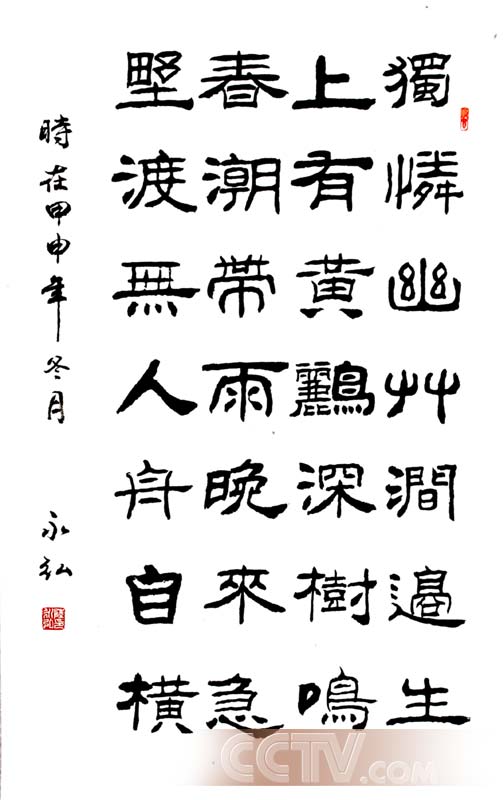 獨憐幽艸澗邊生
上有黃鸝深樹鳴
春潮帶雨晚來急
野渡無人舟自橫
時在甲申年冬月 永弘
CCTV.com